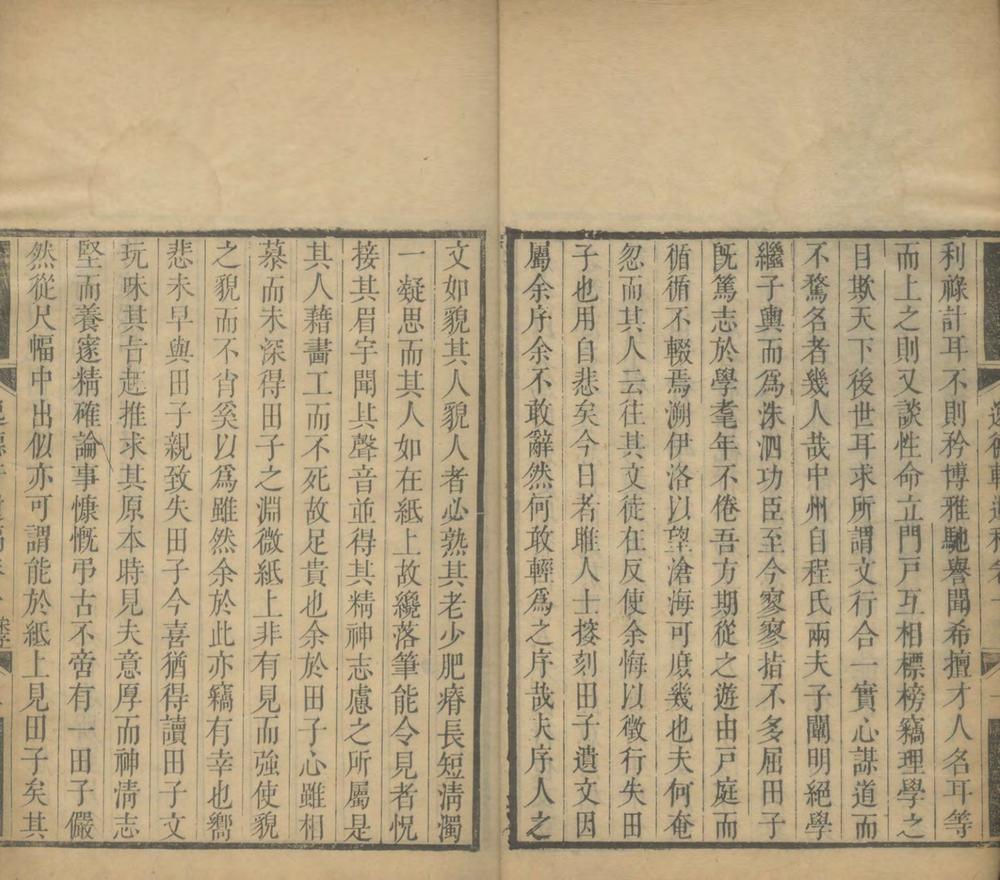 利祿計耳不則矜博雅馳譽聞希擅才人名耳等
而上之則又談性命立門戸互相標榜竊理學之
目欺天下後世耳求所謂文行合一實心謀道而
不騖名者幾人哉中州自程氏兩夫子闡明絕學
繼子輿而爲洙泗功臣至今寥寥指不多屈田子
旣篤志於學耄年不倦吾方期從之遊由戸庭而
循循不輟焉溯伊洛以望滄海可庶幾也夫何奄
忽而其人云往其文徒在反使余悔以徵行失田
子也用自悲矣今日者睢人士授刻田子遺文因
屬余序余不敢辭然何敢輕爲之序哉夫序人之
文如貌其人貌人者必熟其老少肥瘠長短淸濁
一凝思而其人如在紙上故纔落筆能令見者怳
接其眉宇聞其聲音並得其精神志慮之所屬是
其人藉畵工而不死故足貴也余於田子心雖相
慕而未深得田子之淵微紙上非有見而強使貌
之貌而不肖奚以爲雖然余於此亦竊有幸也嚮
悲未早與田子親致失田子今喜猶得讀田子文
玩味其㫖趣推求其原本時見夫意厚而神淸志
堅而養邃精確論事慷慨弔古不啻有一田子儼
然從尺幅中出似亦可謂能於紙上見田子矣其